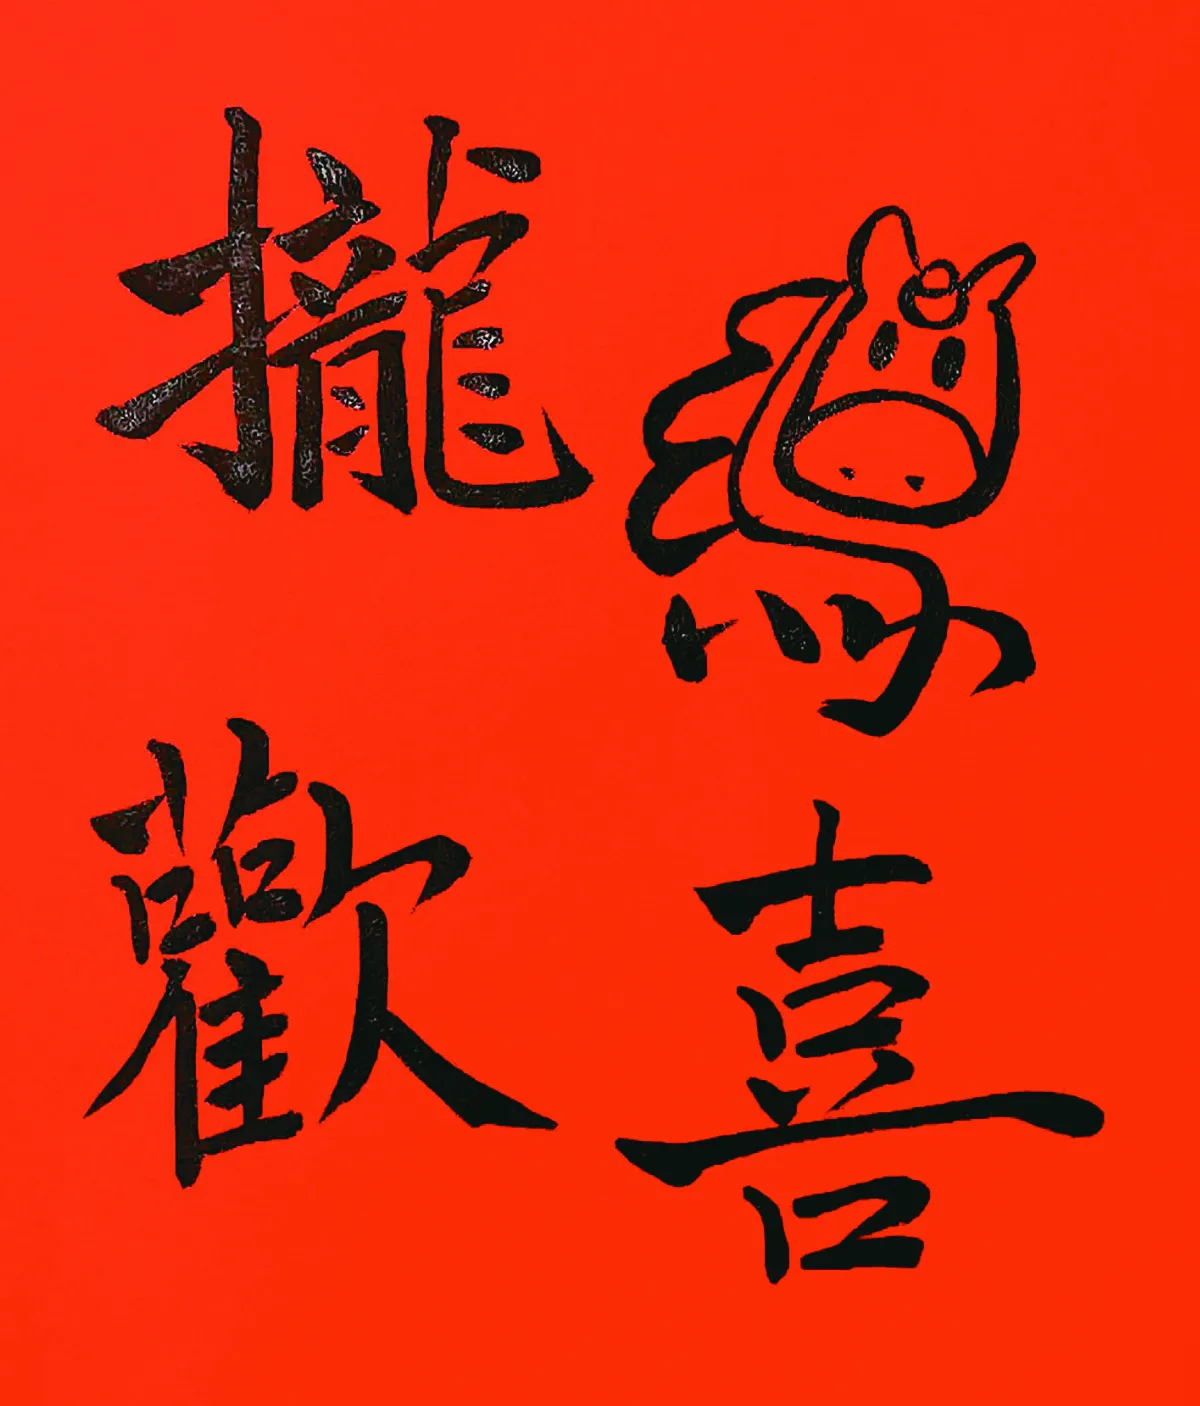 攏馬
歡喜